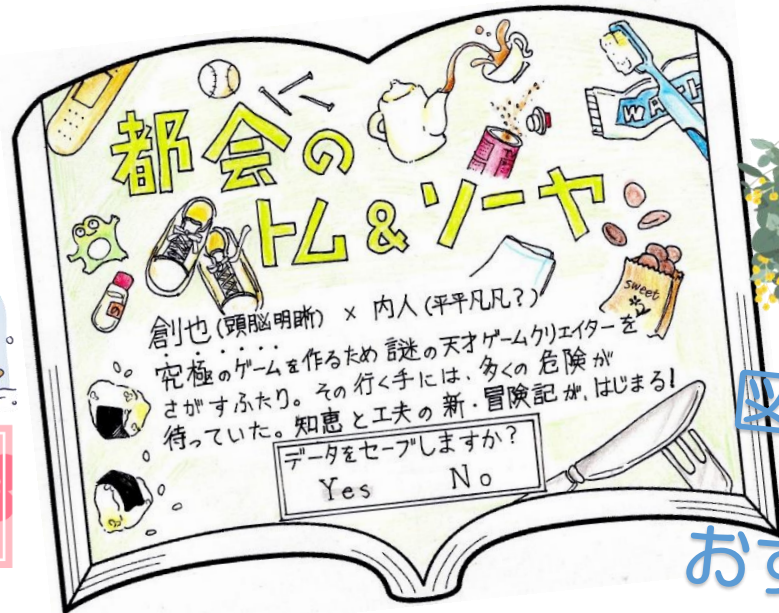 都会の
トム&ソーヤ
WASH
sweet
創也(頭脳明晰) × 内人(平平凡凡?)
究極のゲームを作るため謎の天才ゲームクリエイターを
さがすふたり。その行く手には、多くの危険が
待っていた。知恵と工夫の新・冒険記が、はじまる!
データをセーブしますか?
Yes No
おす